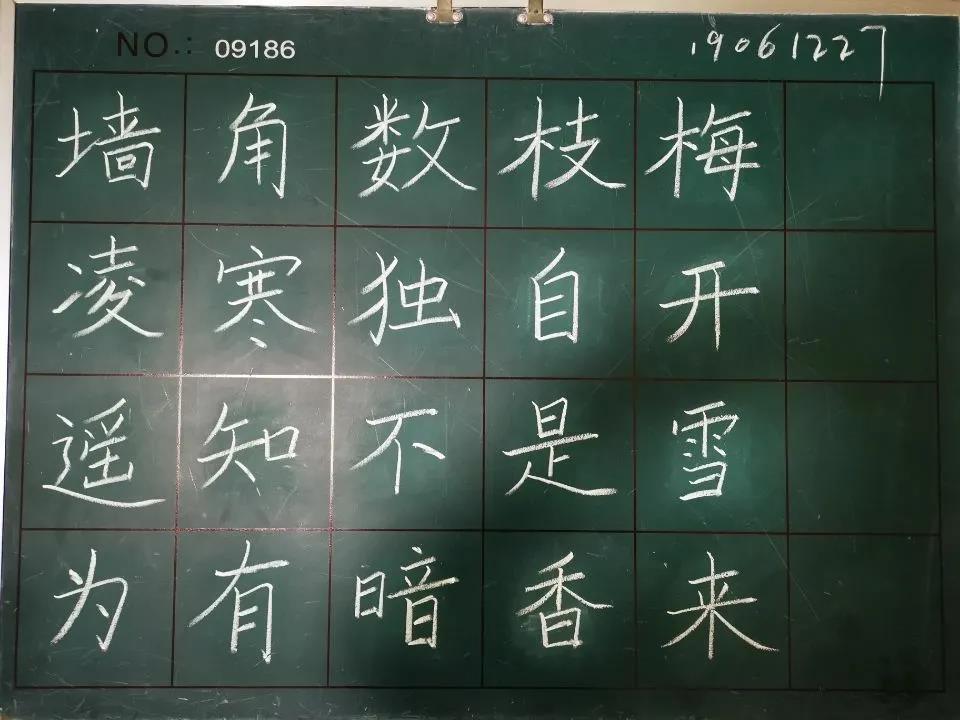 NO.: 09186
19061227
墙角数枝梅
凌寒独自开
遥知不是雪
为有暗香来